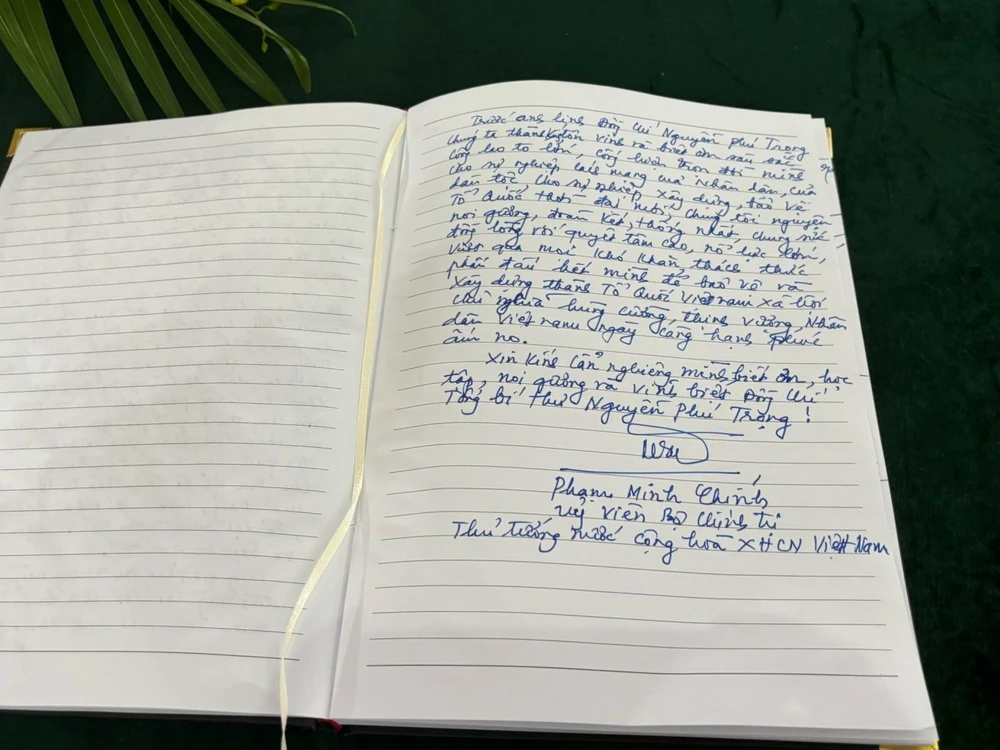 Trước anh linh Đồng chí Nguyễn Phú Trọng
chúng ta thành kính tôn vinh và biết ơn sâu sắc
công lao to lớn, cống hiến trọn đời mình
cho sự nghiệp cách mạng của Nhân dân, của
dân tộc, cho sự nghiệp xây dựng, bảo vệ
Tổ Quốc thời đại mới, chúng tôi nguyện
noi gương, đoàn kết, thống nhất, chung sức
đồng lòng với quyết tâm cao, nỗ lực lớn,
vượt qua mọi khó khăn thách thức
phấn đấu hết mình để bảo vệ và
xây dựng thành Tổ Quốc Việt nam xã hội
chủ nghĩa hùng cường, thịnh vượng, Nhân
dân Việt nam ngày càng hạnh phúc
ấm no.
Xin kính cẩn nghiêng mình biết ơn, học
tập, noi gương và vĩnh biệt Đồng chí
Tổng bí thư Nguyễn Phú Trọng!
Phạm Minh Chính
Uỷ viên Bộ Chính trị
Thủ tướng nước cộng hoà XHCN Việt Nam